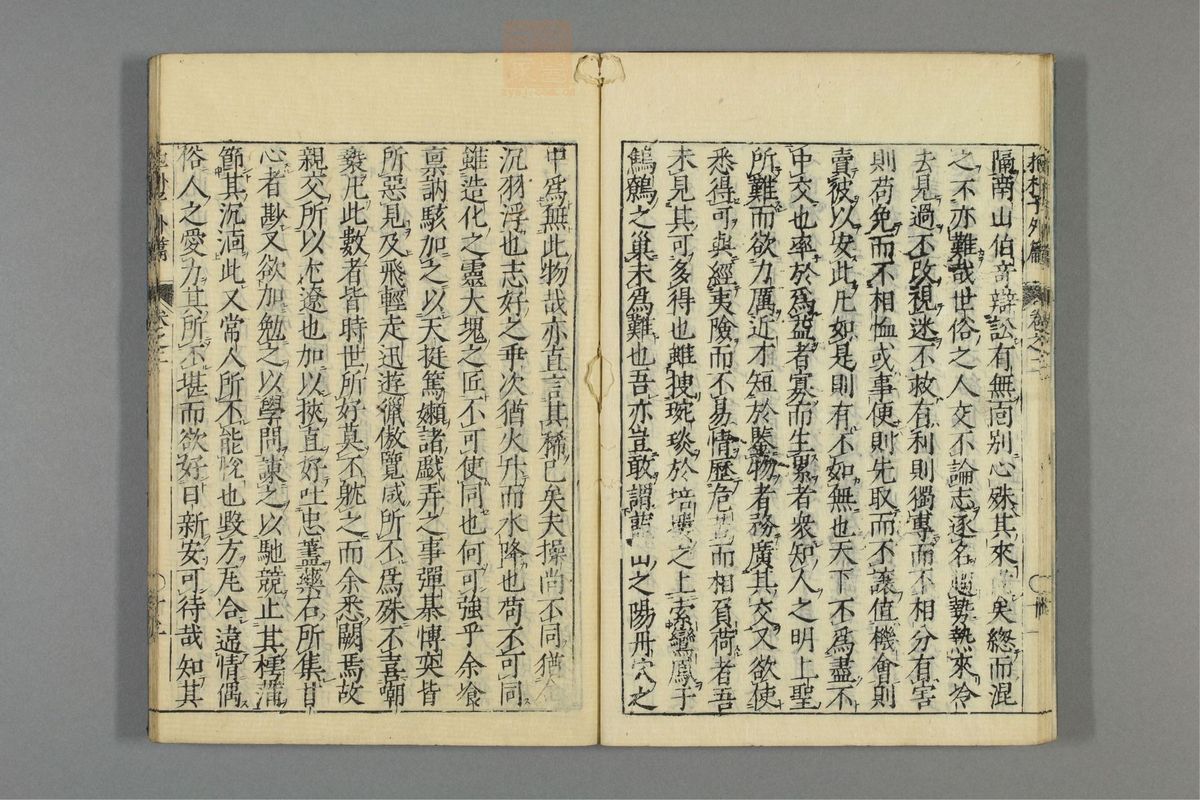 抱朴子外篇 卷之二
隔南山伯奇辯訟有無面别心殊其來矣緫而混
之不亦難哉世俗之人交不論志逐名趨勢熱來冷
去見過不改視迷不救有利則獨專而不相分有害
則苟免而不相恤或事使則先取而不讓值機會則
賣彼以安此凡如是則有不如無也天下不爲盡不
中交也率於爲益者寡而生累者衆知人之明上聖
所難而欲力厲近才短於鑒物者務廣其交又欲使
悉得可與經夷險而不易情歷危而相負荷者吾
未見其可多得也雖捜琬琰於培塿之上索鸞鳳于
鷦鷯之巢未爲難也吾亦豈敢謂藍山之陽丹穴之
中爲無此物哉亦直言其稀已矣夫操尚不同猶金
沉羽浮也志好之乖次猶火升而水降也苟不可同
雖造化之靈大塊之匠不可使同也何可強乎余所
禀訥駭加之以天挺篤嬾諸戲弄之事彈棊愽奕皆
所惡見及飛輕走迅遊獵傲覽咸所不爲殊不喜嘲
䙝凡此數者皆時世所好莫不躭之而余悉闕焉故
親交所以尤遼也加以挾直好吐忠藎藥石所集甘
心者尠又欲加勉之以學問諫之以馳競止其樗蒲
節其沉湎此又常人所不能恱也毀方瓦合違情偶
俗人之愛力甚所不堪而欲好日新安可待哉知其